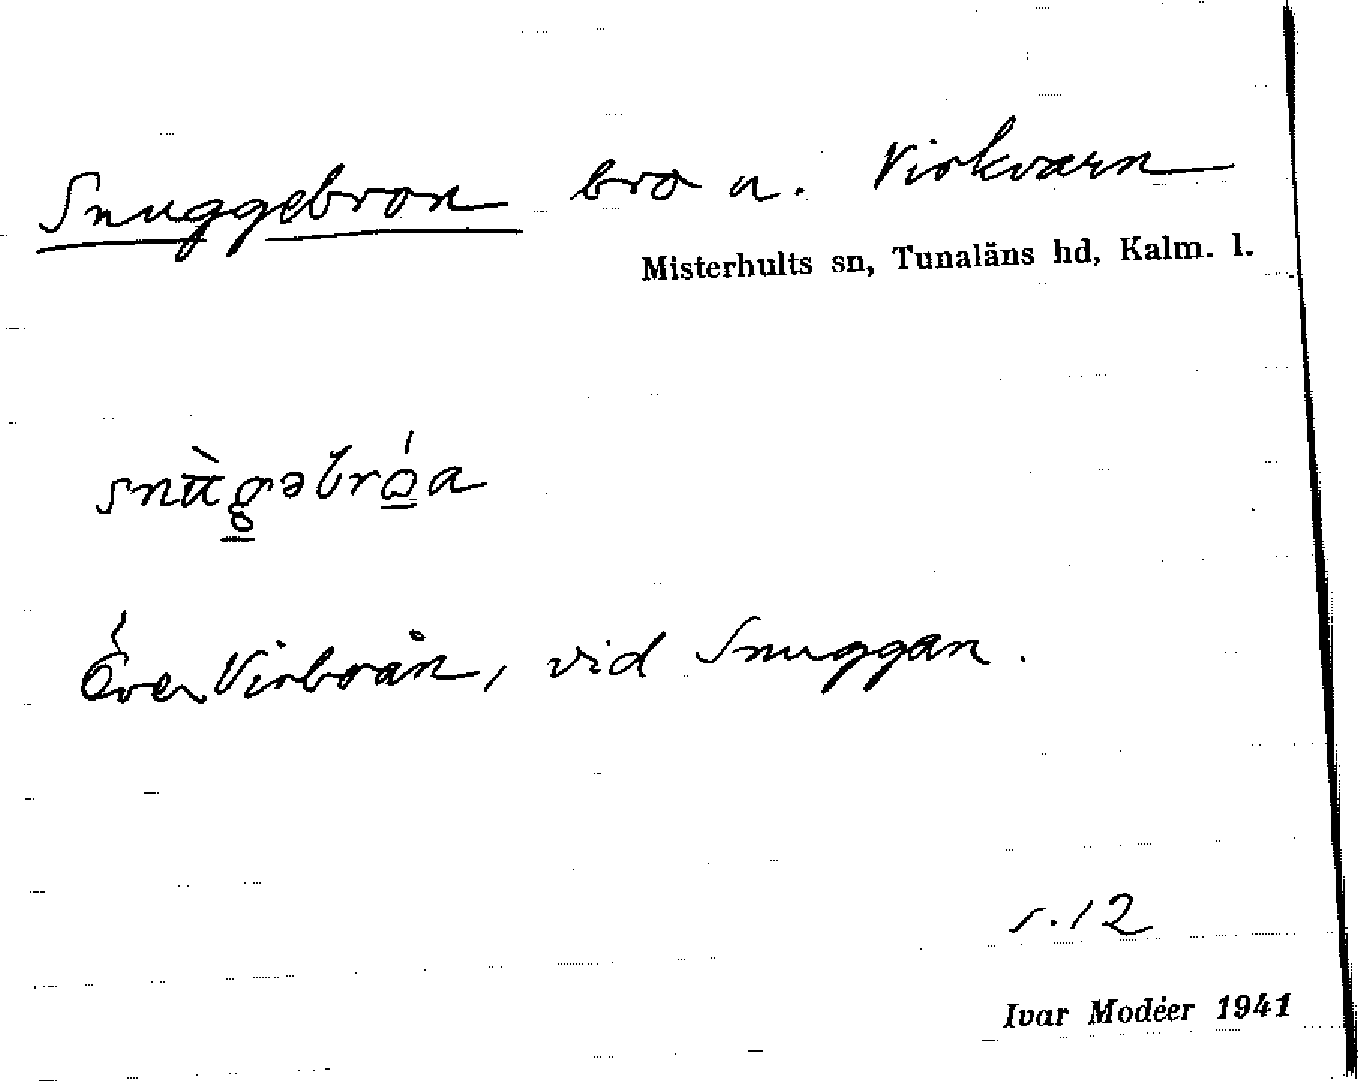 Snuggebron bro u. Virkvarn
Misterhults sn, Tunaläns hd, Kalm. l.
Över Virboån, vid Snuggan.
s. 12
Ivar Modéer 1941